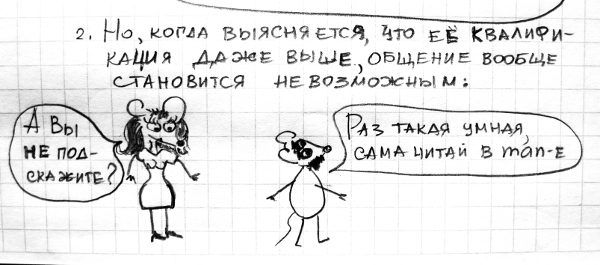 2. Но, когда выясняется, что её квалифи-
кация даже выше, общение вообще
становится невозможным:
А Вы
не под-
скажите?
Раз такая умная,
сама читай в man-е